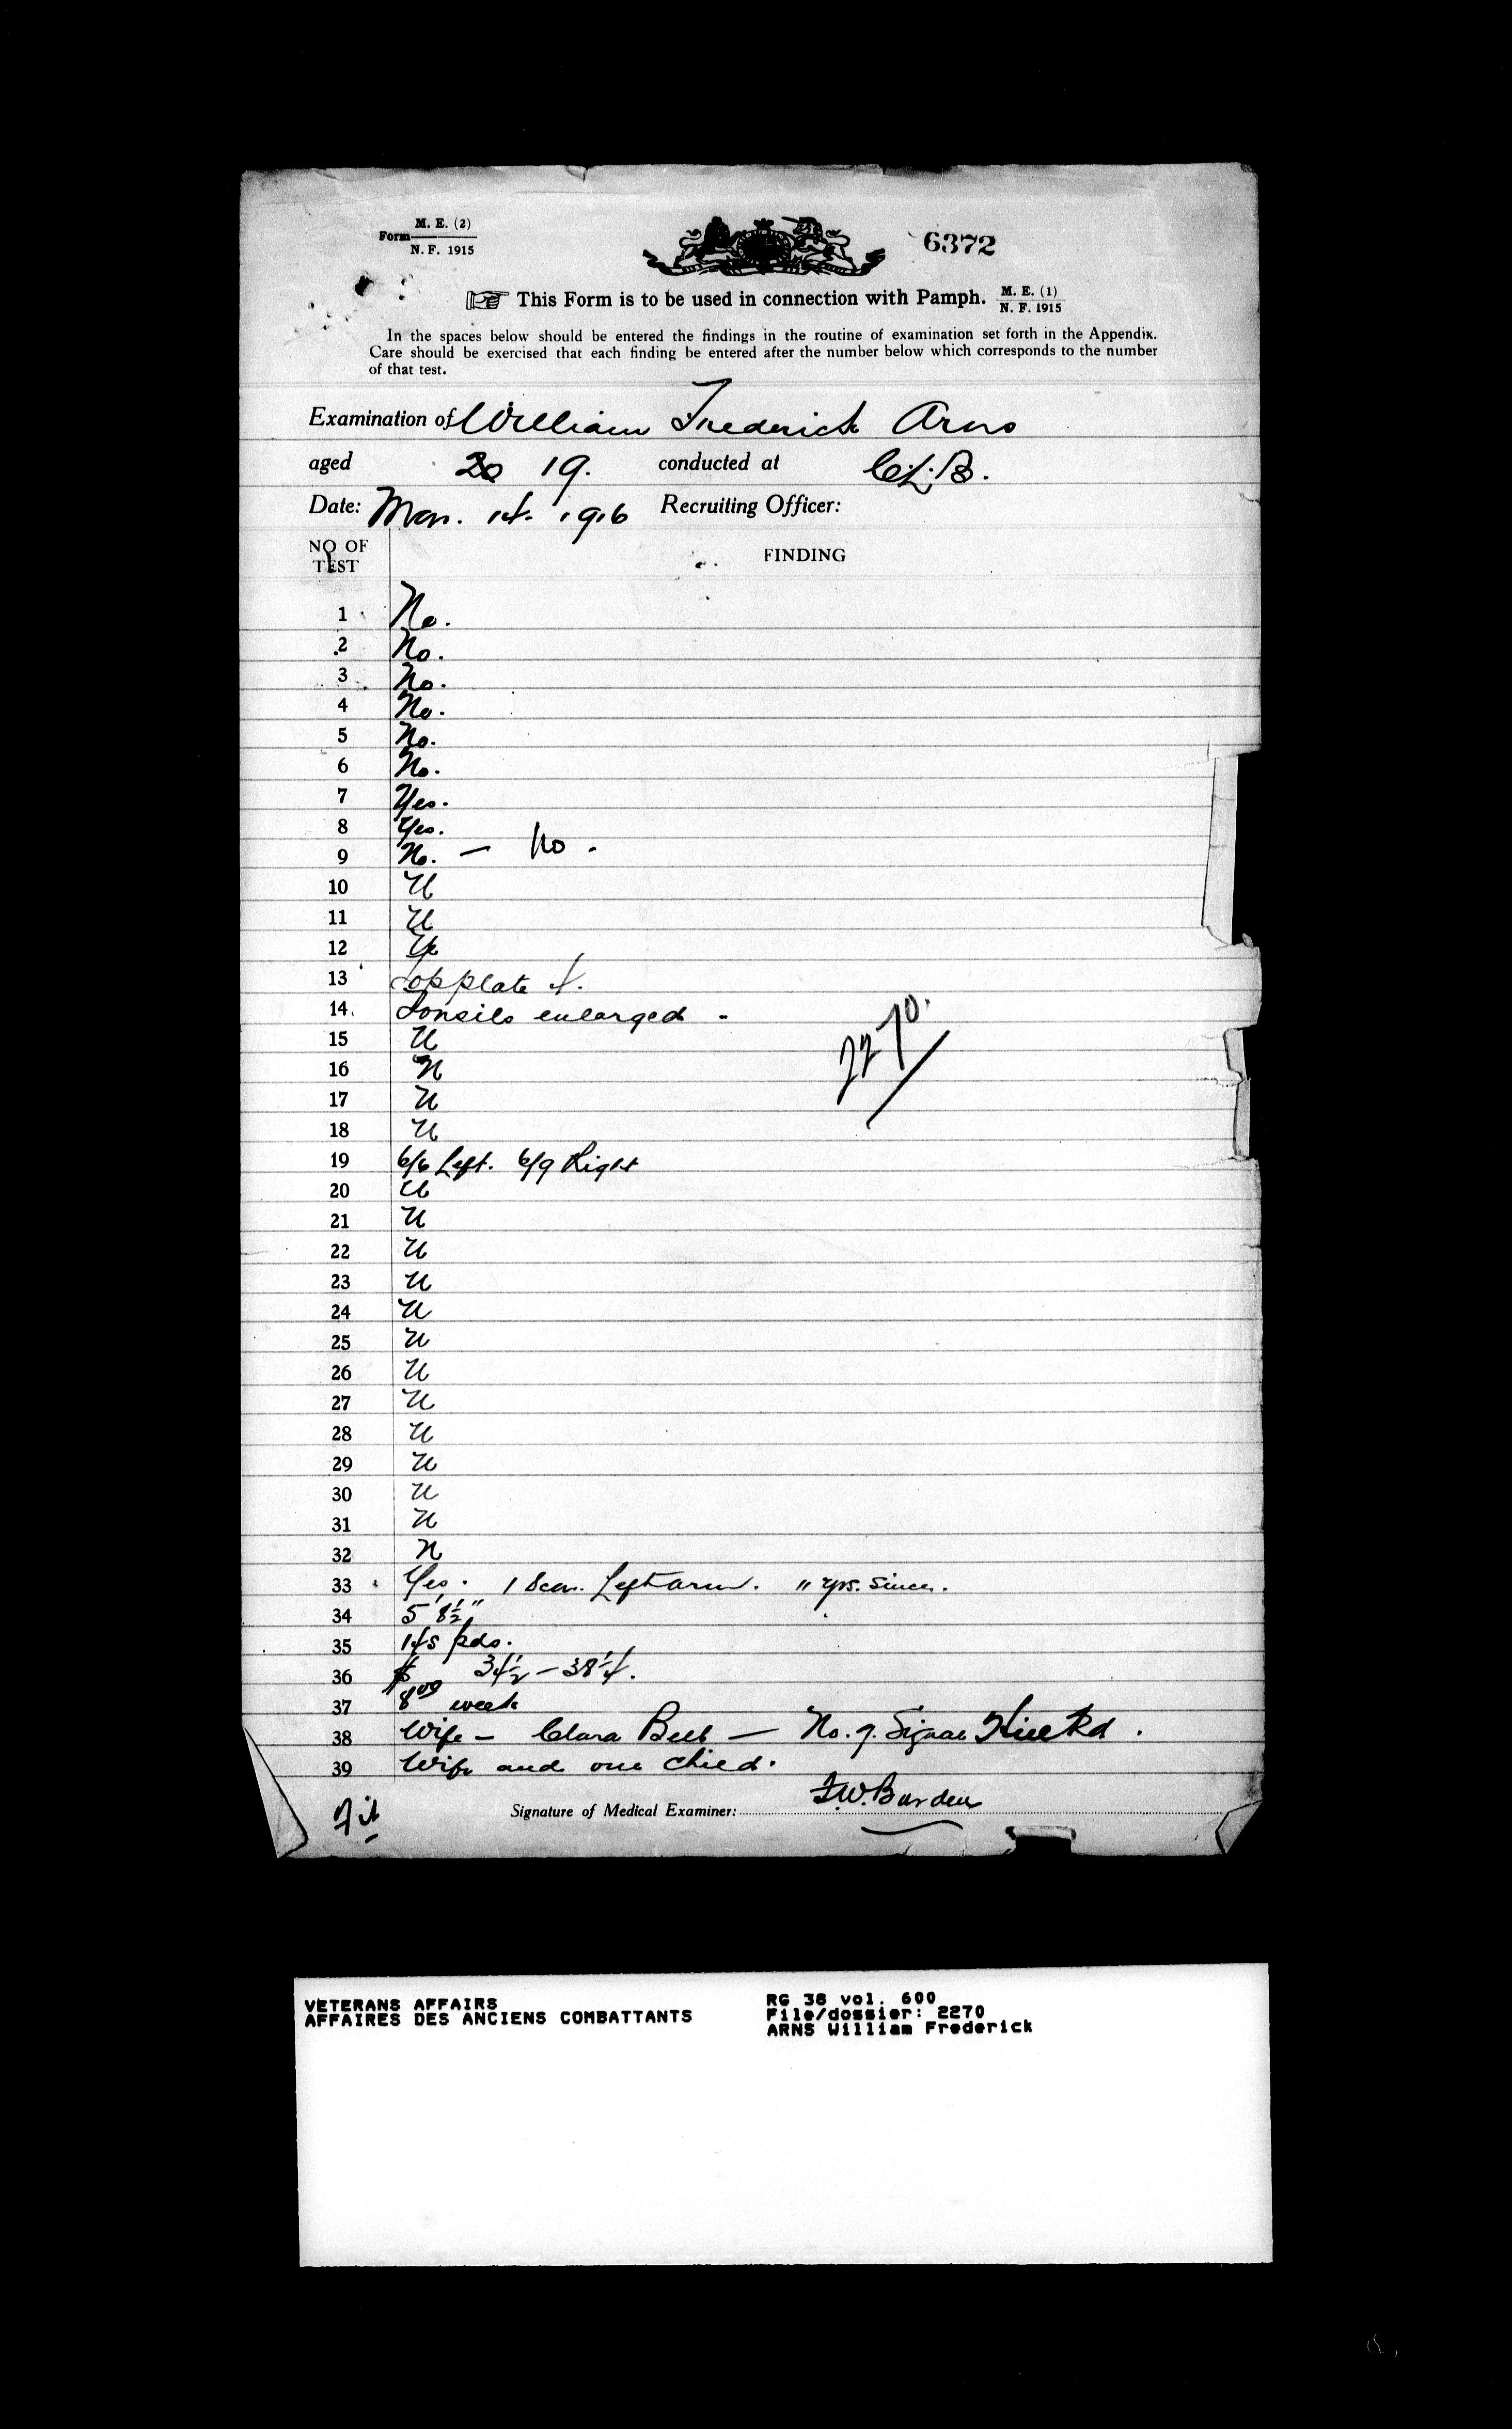 Form M. E. (2)
N. F. 1915
6372
This Form is to be used in connection with Pamph. M. E. (1)
N. F. 1915
In the spaces below should be entered the findings in the routine of examination set forth in the Appendix.
Care should be exercised that each finding be entered after the number below which corresponds to the number
of that test.
Examination of William Frederick Arns
aged 20 19. conducted at C.L.B.
Date: Mar. 14. 1916 Recruiting Officer:
NO OF
TEST
FINDING
1 No.
2 No.
3 No.
4 No.
5 No.
6 No.
7 Yes.
8 Yes.
9 No. — No.
10 N
11 N
12
13 Top plate
14 Tonsils enlarged -
2270.
15 N
16 N
17 N
18 N
19 6/6 Left. 6/9 Right
20 N
21 N
22 N
23 N
24 N
25 N
26 N
27 N
28 N
29 N
30 N
31 N
32 N
33 Yes. 1 Scar. Left arm. 11 yrs. since.
34 5' 8½"
35 145 pds.
36 34½ — 38¼.
37 $8.00 week
38 Wife — Clara Bell — No. 9. Signal Hill Rd.
39 Wife and one child.
Fit
Signature of Medical Examiner: F.W. Burden
VETERANS AFFAIRS
AFFAIRES DES ANCIENS COMBATTANTS
RG 38 vol. 600
File/dossier: 2270
ARNS William Frederick